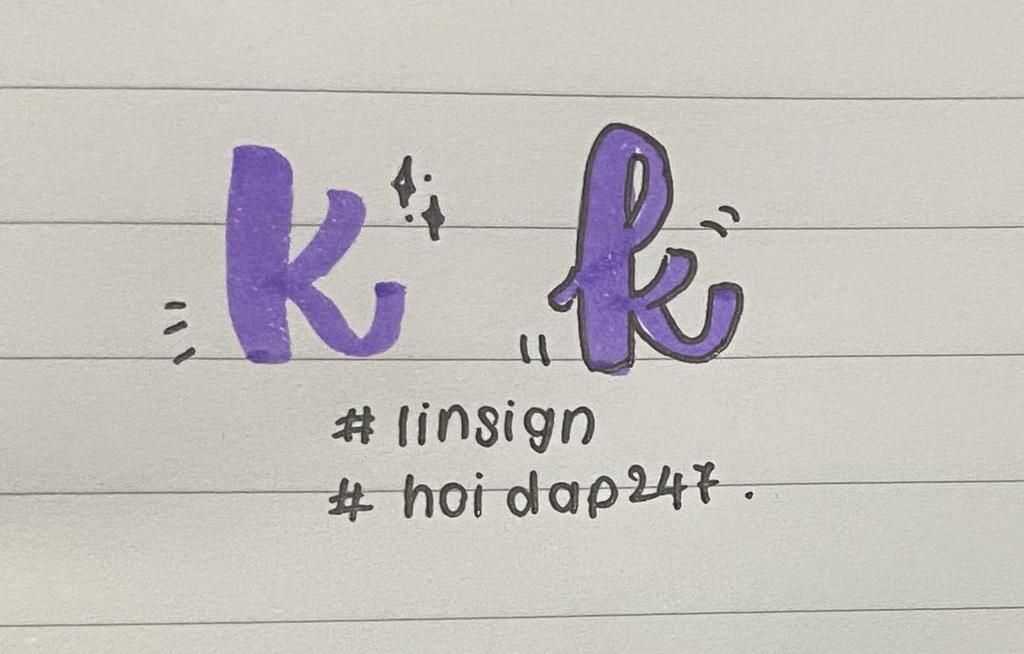 k k
# linsign
# hoidap247.